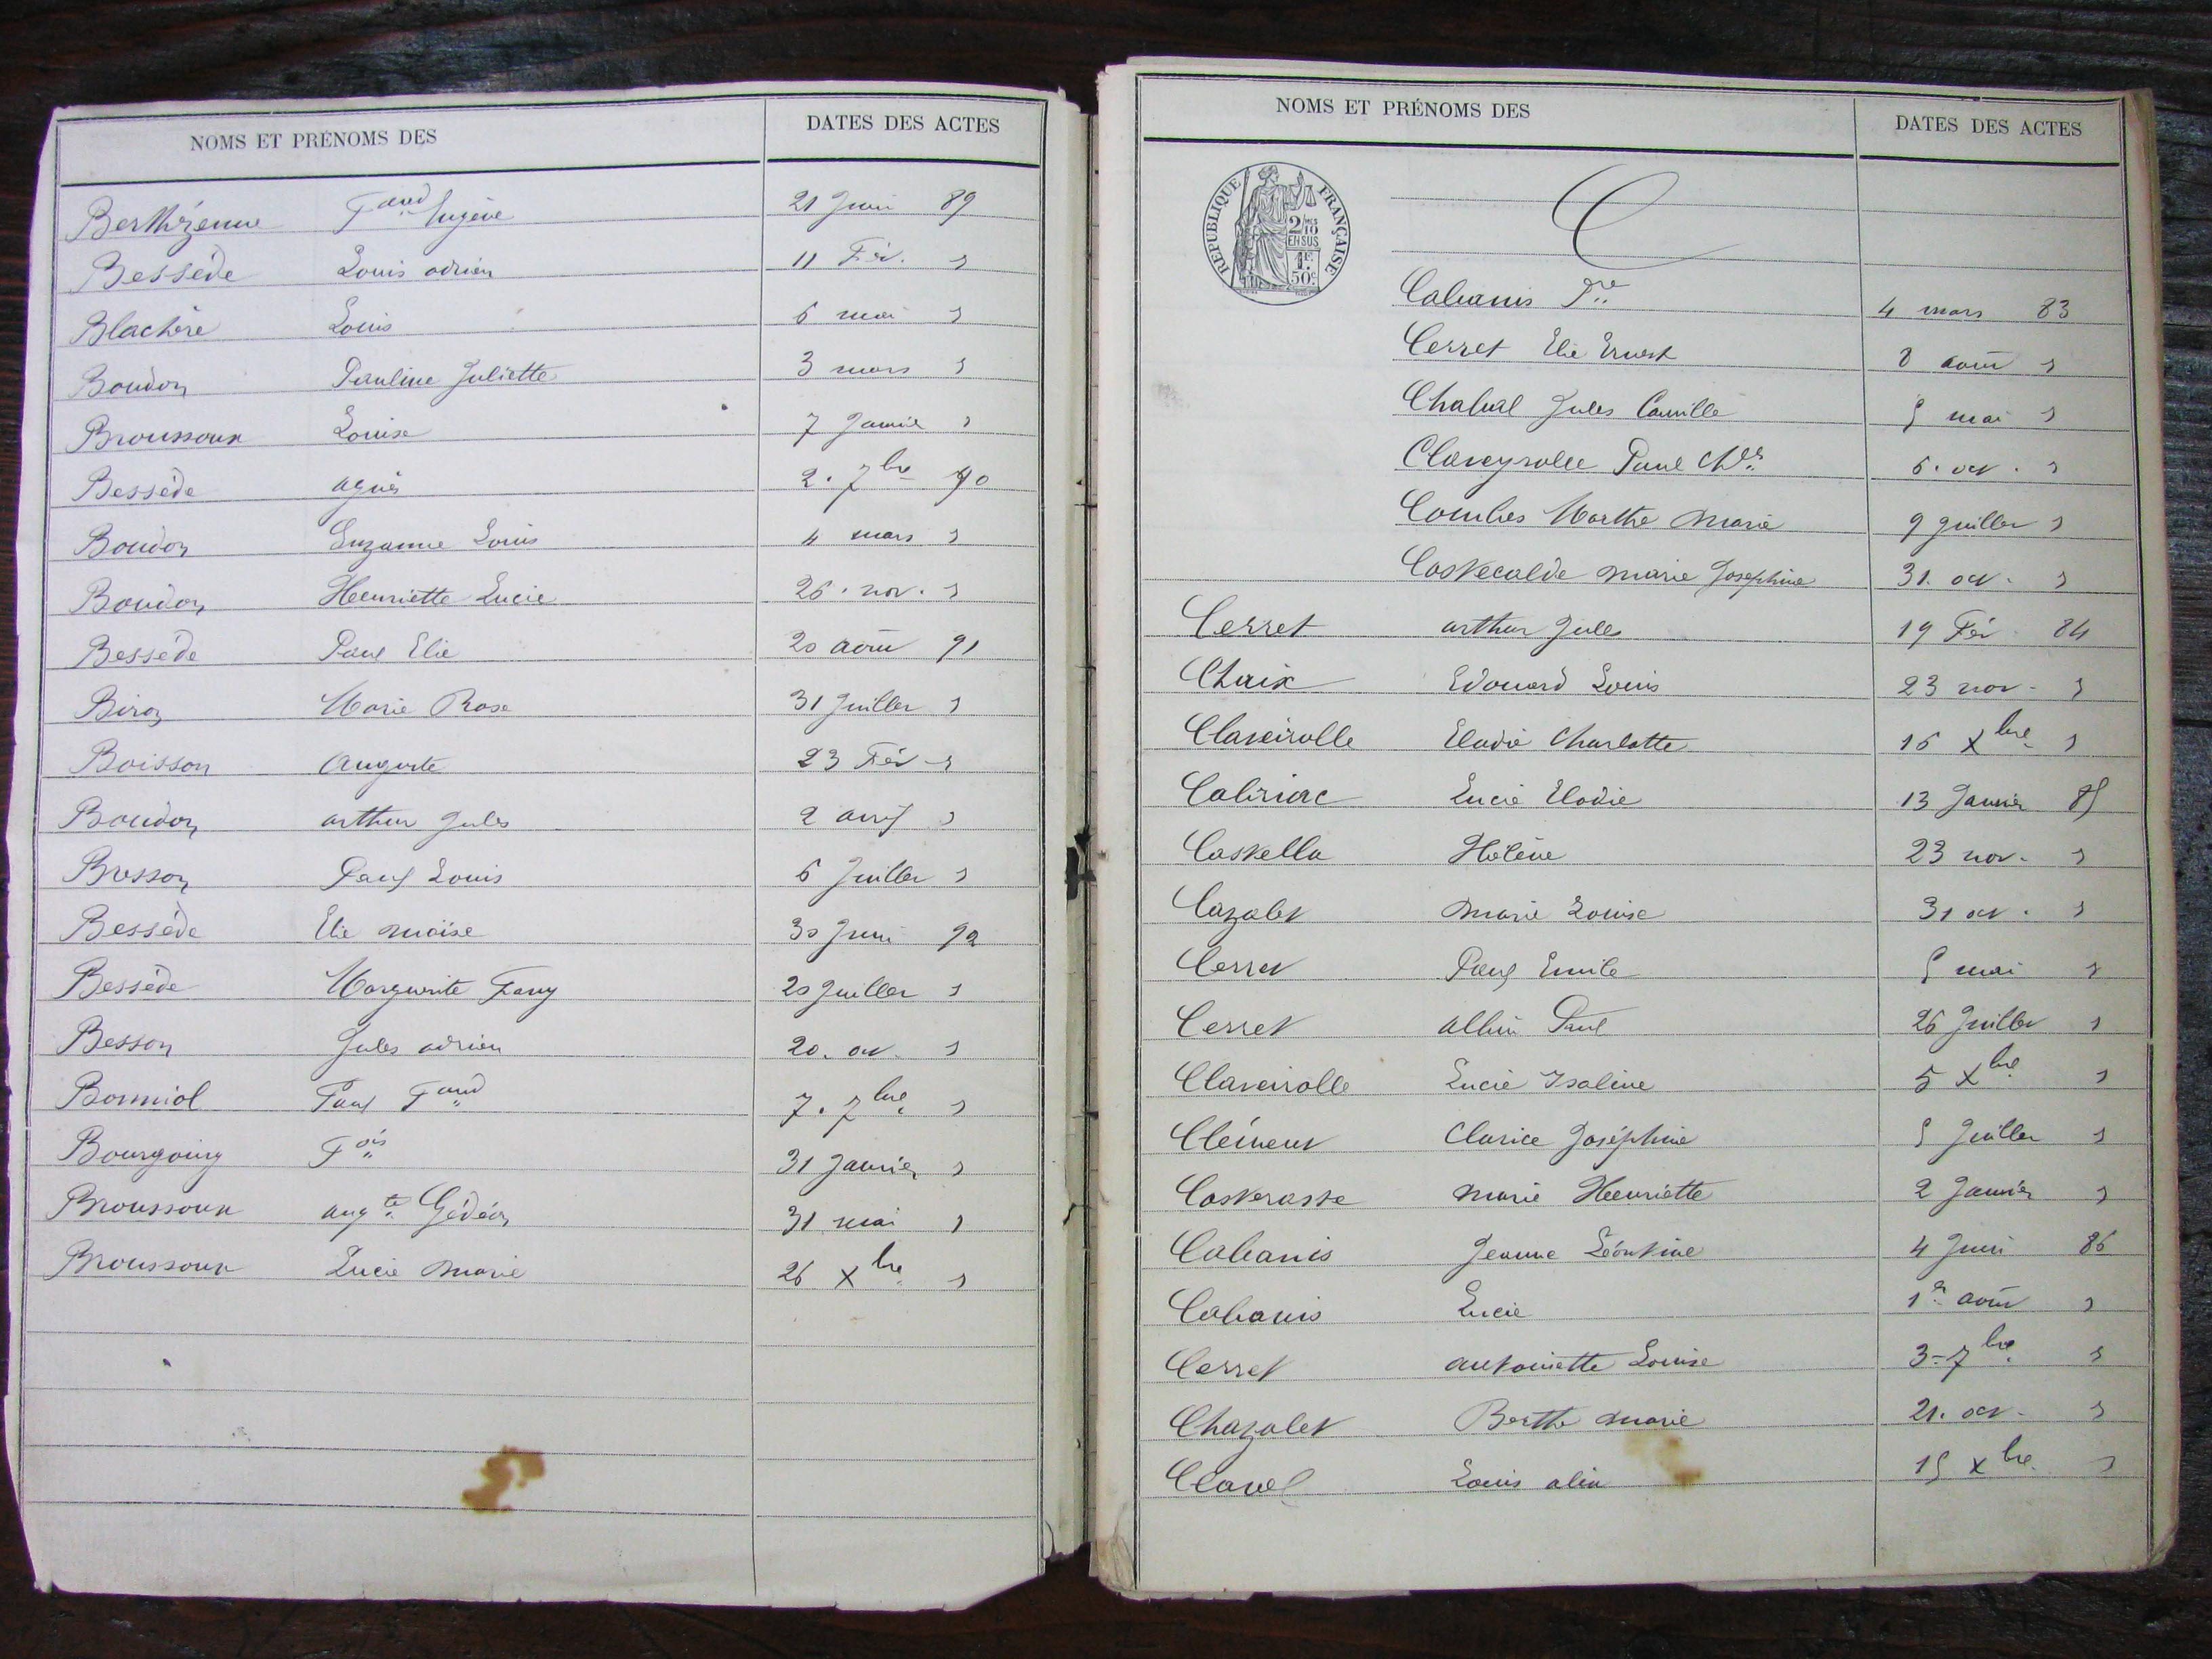 NOMS ET PRÉNOMS DES DATES DES ACTES
Berthézenne Fand Eugène 21 Juin 89
Bessède Louis adrien 11 Fév. "
Blachère Louis 6 mai "
Boudon Pauline Juliette 3 mars "
Broussoux Louise 7 Janvier "
Bessède agnès 2. 7bre 90
Boudon Suzanne Louis 4 mars "
Boudon Henriette Lucie 26. nov. "
Bessède Paul Elie 20 août 91
Biron Marie Rose 31 Juillet "
Boisson Auguste 23 Fév "
Boudon arthur Jules 2 avril "
Busson Paul Louis 6 Juillet "
Bessède Elie moïse 30 Juin 92
Bessède Marguerite Fany 20 Juillet "
Besson Jules adrien 20. oct. "
Bonniol Paul Fand 7. 7bre "
Bourgoing Fois 31 Janvier "
Broussoux augte Gédéon 31 mai "
Broussoux Lucie Marie 26 Xbre "
NOMS ET PRÉNOMS DES DATES DES ACTES
RÉPUBLIQUE FRANÇAISE
2/10 MES
EN SUS
1F
50c
C
Cabanis 4 mars 83
Cerret Elie Ernest 8 août "
Chabal Jules Camille 5 mai "
Claveyrolle Paul Chles 6. oct. "
Combes Marthe Marie 9 Juillet "
Castecalde Marie Joséphine 31. oct. "
Cerret arthur Jules 19 Fév 84
Chaix Edouard Louis 23 nov. "
Claveirolle Elodie Charlotte 16 Xbre "
Cabriac Lucie Elodie 13 Janvier 85
Castella Hélène 23 nov. "
Cazalet Marie Louise 31 oct. "
Cerret Paul Emile 5 mai "
Cerret albin Paul 26 Juillet "
Claveirolle Lucie Isaline 5 Xbre "
Clément Clarice Joséphine 5 Juillet "
Casterasse Marie Henriette 2 Janvier "
Cabanis Jeanne Léontine 4 Juin 86
Cabanis Lucie 1er août "
Cerret antoinette Louise 3 - 7bre "
Chazalet Berthe Marie 21. oct. "
Clavel Louis alin 15 Xbre "